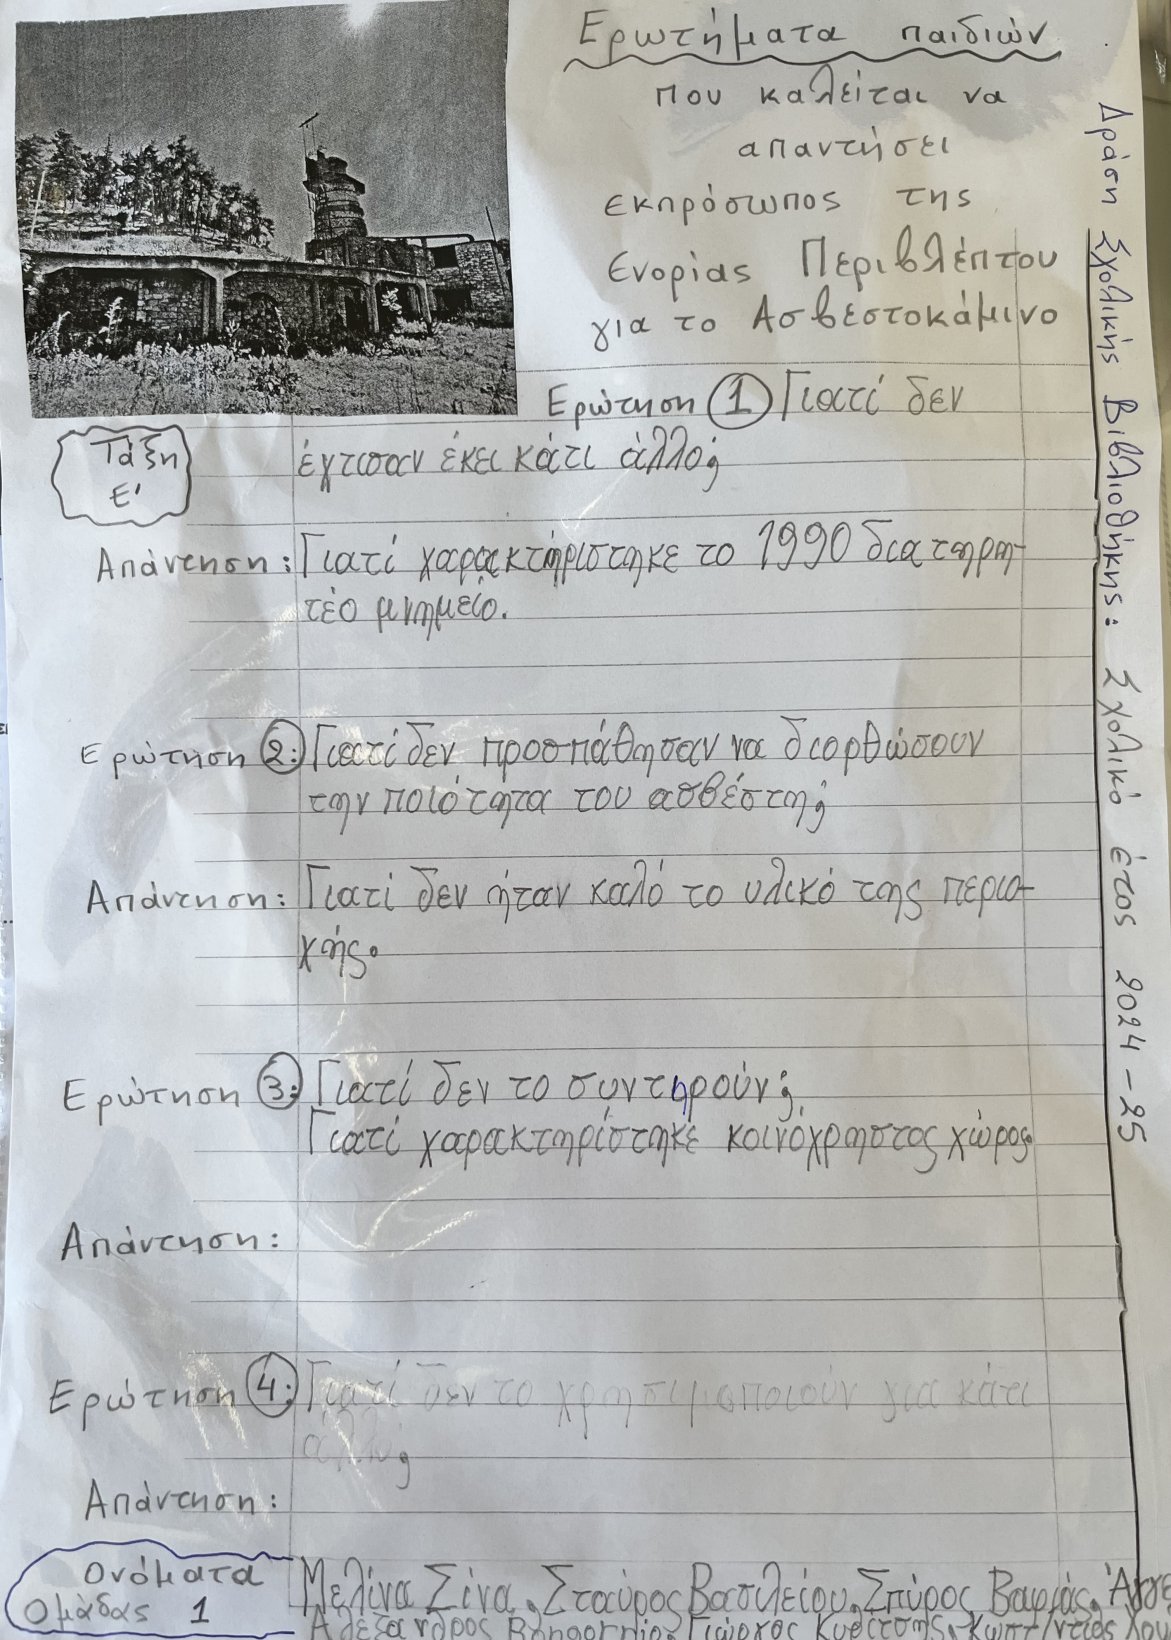 Ερωτήματα παιδιών
που καλείται να
απαντήσει
εκπρόσωπος της
Ενορίας Περιβλέπτου
για το Ασβεστοκάμινο
Ερώτηση 1 Γιατί δεν
έχτισαν έκει κάτι άλλο;
Τάξη
Ε'
Απάντηση: Γιατί χαρακτήριστηκε το 1990 διατηρη-
τέο μνημείο.
Ερώτηση 2: Γιατί δεν προσπάθησαν να διορθώσουν
την ποιότητα του ασβέστη;
Απάντηση: Γιατί δεν ήταν καλό το υλικό της περιο-
χής.
Ερώτηση 3: Γιατί δεν το συντηρούν;
Γιατί χαρακτηρίστηκε κοινόχρηστος χώρος.
Απάντηση:
Ερώτηση 4: Γιατί δεν το χρησιμοποιούν για κάτι
άλλο;
Απάντηση:
Ονόματα
Ομάδας 1
Μελίνα Σίνα, Σταύρος Βασιλείου, Σπύρος
Αλέξανδρος Γιώργος
Δράση Σχολικής Βιβλιοθήκης: Σχολικό έτος 2024-25